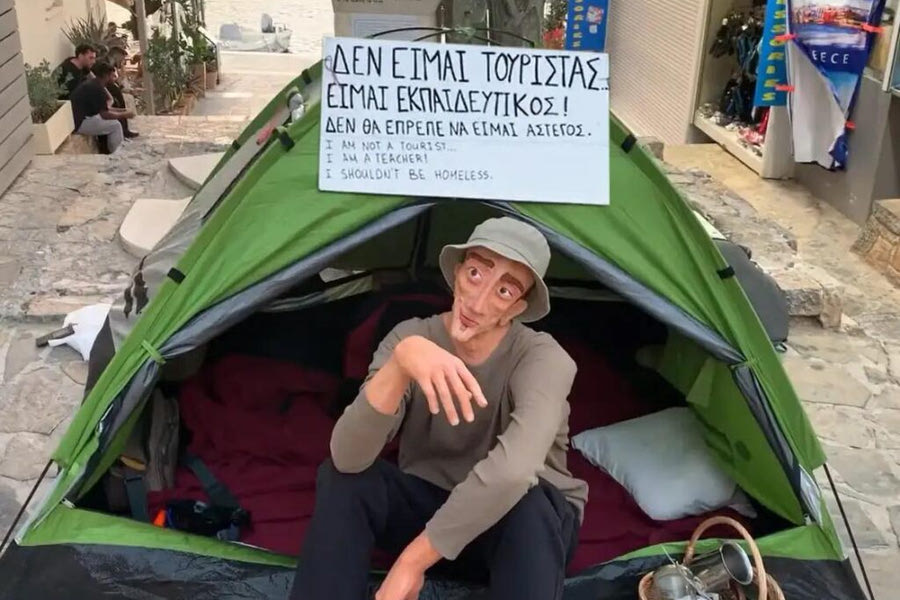 ΔΕΝ ΕΙΜΑΙ ΤΟΥΡΙΣΤΑΣ...
ΕΙΜΑΙ ΕΚΠΑΙΔΕΥΤΙΚΟΣ!
ΔΕΝ ΘΑ ΕΠΡΕΠΕ ΝΑ ΕΙΜΑΙ ΑΣΤΕΓΟΣ.
I AM NOT A TOURIST...
I AM A TEACHER!
I SHOULDN'T BE HOMELESS.